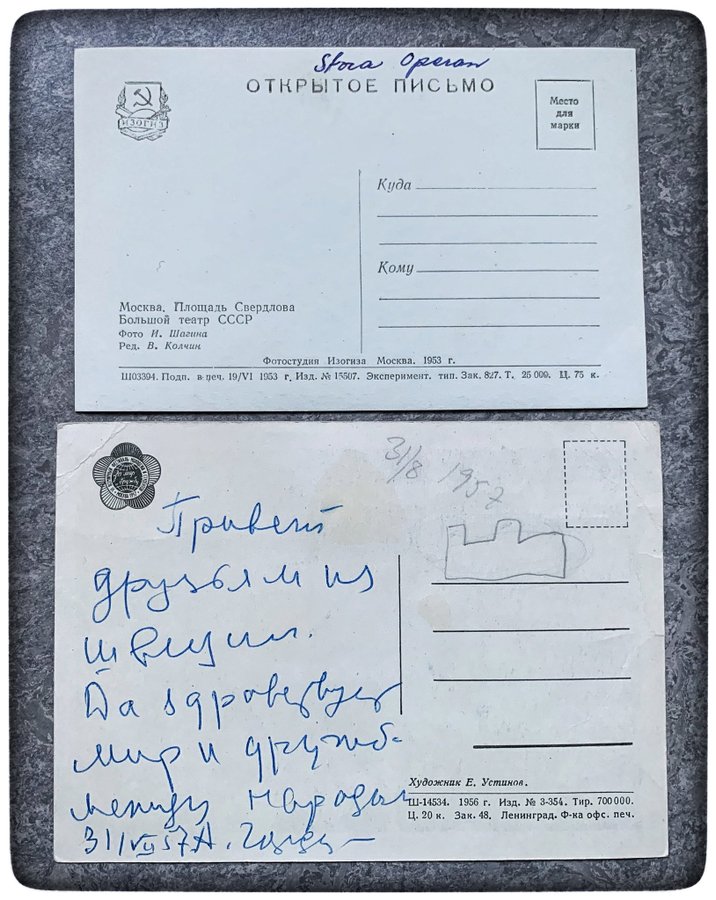 Stora Operan
ОТКРЫТОЕ ПИСЬМО
ИЗОГИЗ
Место
для
марки
Куда
Кому
Москва. Площадь Свердлова
Большой театр СССР
Фото И. Шагина
Ред. В. Колчин
Фотостудия Изогиза Москва. 1953 г.
Ш03394. Подп. в печ. 19/VI 1953 г. Изд. № 15507. Эксперимент. тип. Зак. 827. Т. 25 000. Ц. 75 к.
31/8 1957
Привет
друзьям из
швеции.
Да здравствует
мир и дружба
между народами
31/VII 57 А.
Художник Е. Устинов.
Ш-14534. 1956 г. Изд. № 3-354. Тир. 700000.
Ц. 20 к. Зак. 48. Ленинград. Ф-ка офс. печ.